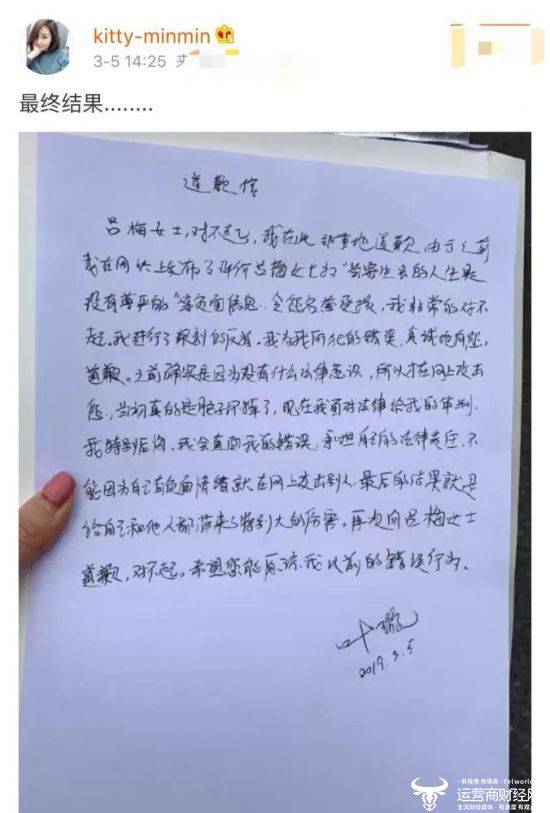 kitty-minmin
3-5 14:25
最终结果........
道歉信
吕梅女士,对不起,我在此郑重地道歉,由于之前
我在网络上发布了评价吕梅女士为"当寄生虫的人生是
没有尊严的"等负面信息,令您名誉受损,我非常的对不
起。我进行了深刻的反省。我为我所犯的错误,真诚地向您
道歉。之前确实是因为没有什么法律意识,所以才在网上攻击
您,当初真的是脑子坏掉了,现在我面对法律给我的审判,
我特别后悔,我会直面我的错误,承担自己的法律责任,不
能因为自己有负面情绪就在网上攻击别人,最后的结果就是
给自己和他人都带来了特别大的伤害,再次向吕梅女士
道歉,对不起。希望您能原谅我以前的错误行为。
叶璇
2019.3.5
·有视角 有态度·Telworld
运营商财经网
主流财经媒体·有速度 有观